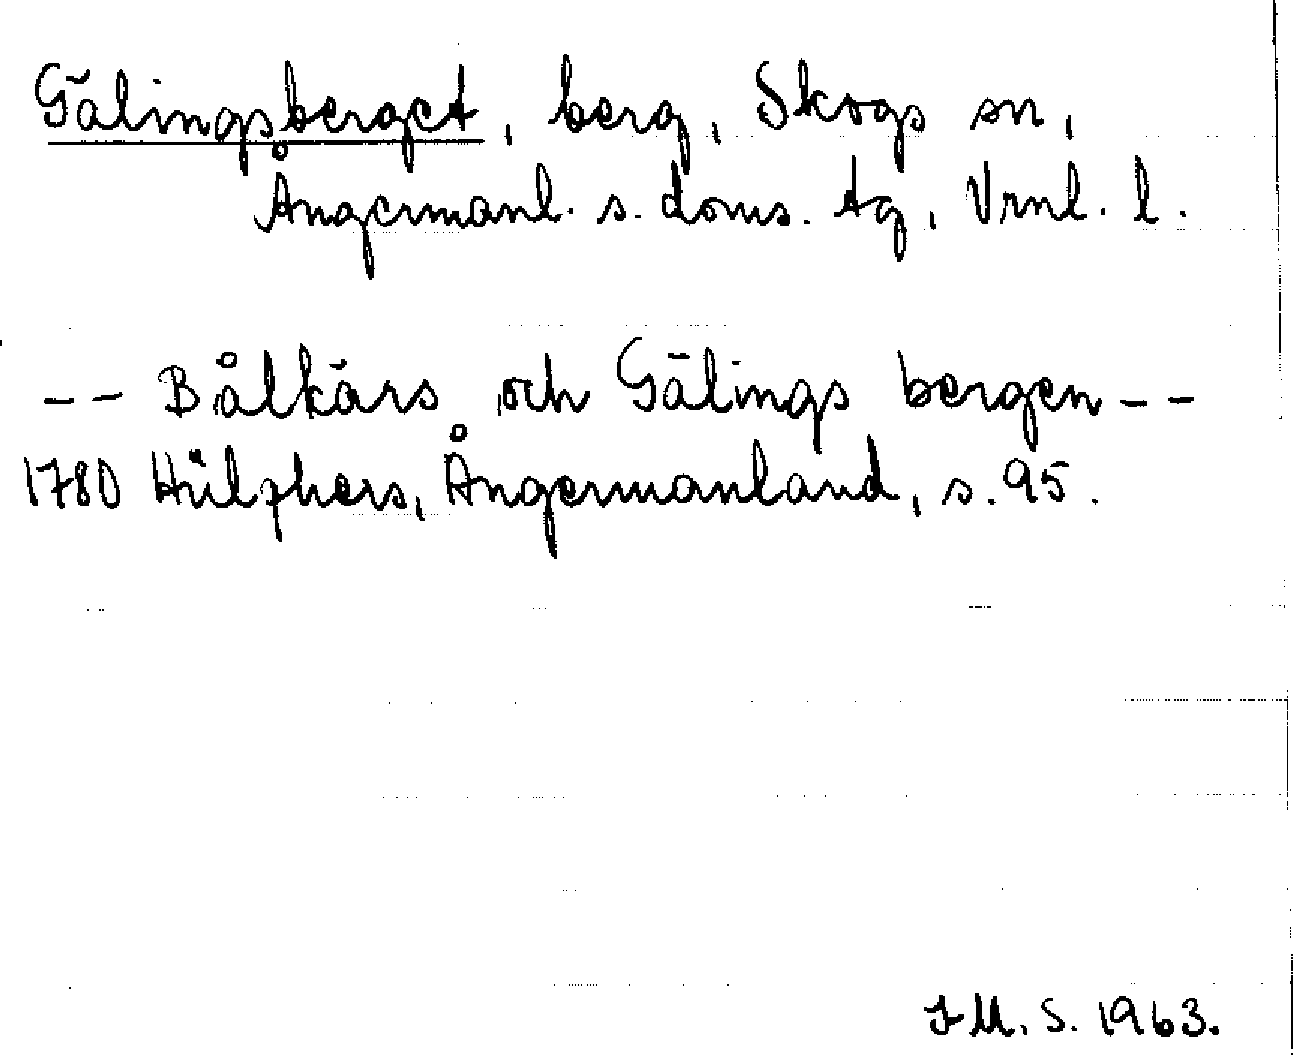 Gälingsberget, berg, Skogs sn,
Ångermanl. s. doms. tg, Vrnl. l.
-- Bålkärs och Gälings bergen --
1780 Hülphers, Ångermanland, s. 95.
I M. S. 1963.